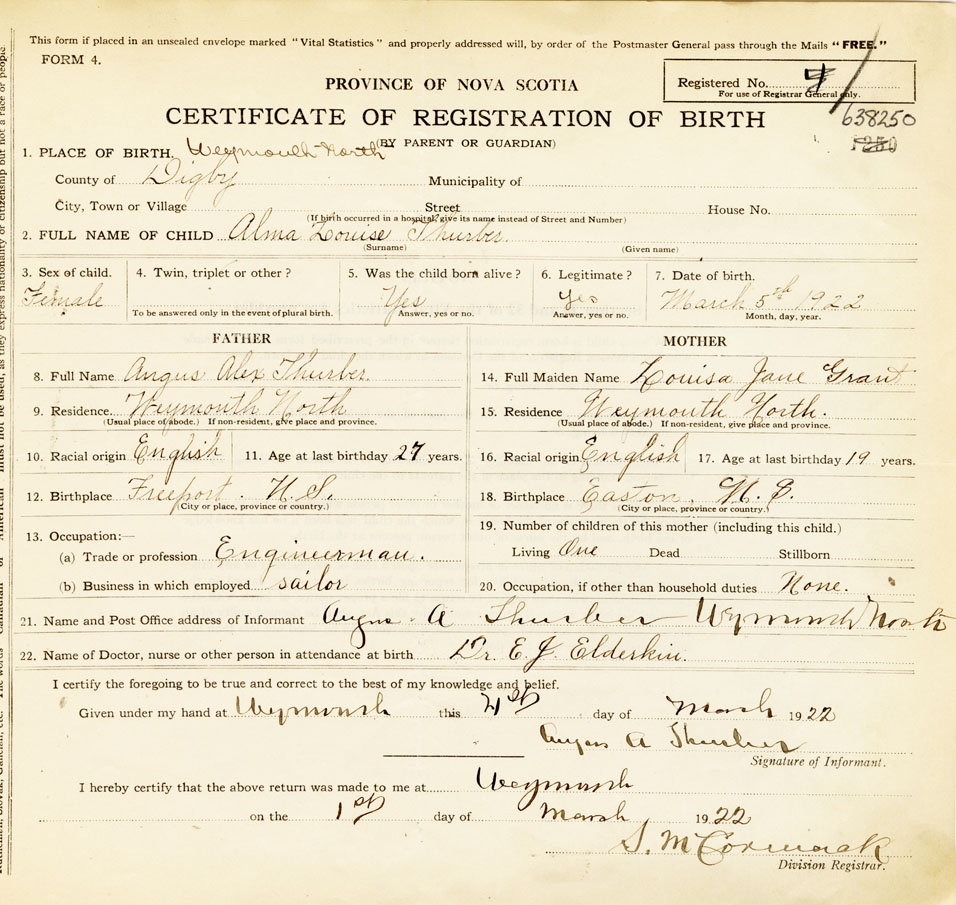 This form if placed in an unsealed envelope marked "Vital Statistics" and properly addressed will, by order of the Postmaster General pass through the Mails "FREE."
FORM 4.
PROVINCE OF NOVA SCOTIA
Registered No.
For use of Registrar General only.
CERTIFICATE OF REGISTRATION OF BIRTH
638250
(BY PARENT OR GUARDIAN)
1. PLACE OF BIRTH. Weymouth North
County of Digby Municipality of
City, Town or Village Street House No.
(If birth occurred in a hospital, give its name instead of Street and Number)
2. FULL NAME OF CHILD Alma Louise Thurber
(Surname) (Given name)
3. Sex of child. 4. Twin, triplet or other? 5. Was the child born alive? 6. Legitimate? 7. Date of birth.
Female Yes Yes March 5th 1922
To be answered only in the event of plural birth. Answer, yes or no. Answer, yes or no. Month, day, year.
FATHER MOTHER
8. Full Name Angus Alex Thurber
14. Full Maiden Name Louisa Jane Grant
9. Residence. Weymouth North
15. Residence Weymouth North.
(Usual place of abode.) If non-resident, give place and province.
(Usual place of abode.) If non-resident, give place and province.
10. Racial origin English 11. Age at last birthday 27 years.
16. Racial origin English 17. Age at last birthday 19 years.
12. Birthplace Freeport. N.S.
18. Birthplace Easton. N.S.
(City or place, province or country.)
(City or place, province or country.)
13. Occupation:—
19. Number of children of this mother (including this child.)
(a) Trade or profession Engineerman.
Living One Dead Stillborn
(b) Business in which employed sailor
20. Occupation, if other than household duties None.
21. Name and Post Office address of Informant Angus A Thurber Weymouth North
22. Name of Doctor, nurse or other person in attendance at birth Dr. E. J. Elderkin.
I certify the foregoing to be true and correct to the best of my knowledge and belief.
Given under my hand at Weymouth this day of March 1922
Angus A Thurber
Signature of Informant.
I hereby certify that the above return was made to me at Weymouth
on the 1st day of March 1922
S. McCormack
Division Registrar.